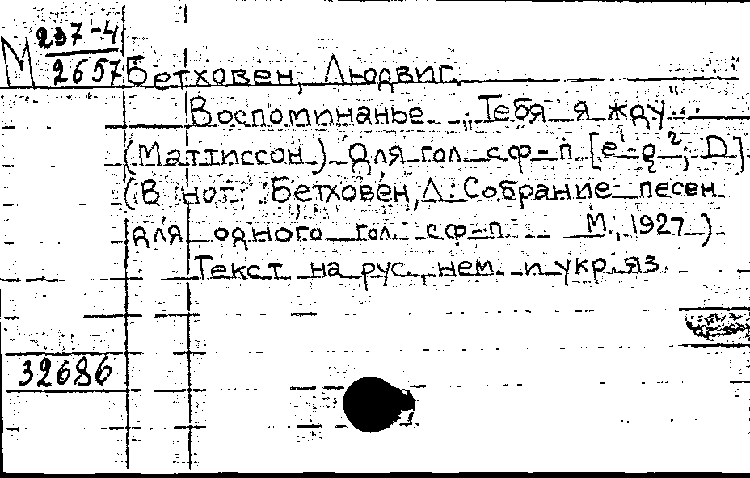 М 237-4
2657
Бетховен, Людвиг.
Воспоминанье. "Тебя я жду".
(Маттиссон.) Для гол. с ф-п. [e¹-g², D]
(В нот.: Бетховен, Л. Собрание песен
для одного гол. с ф-п. М., 1927.)
Текст на рус., нем. и укр. яз.
32686